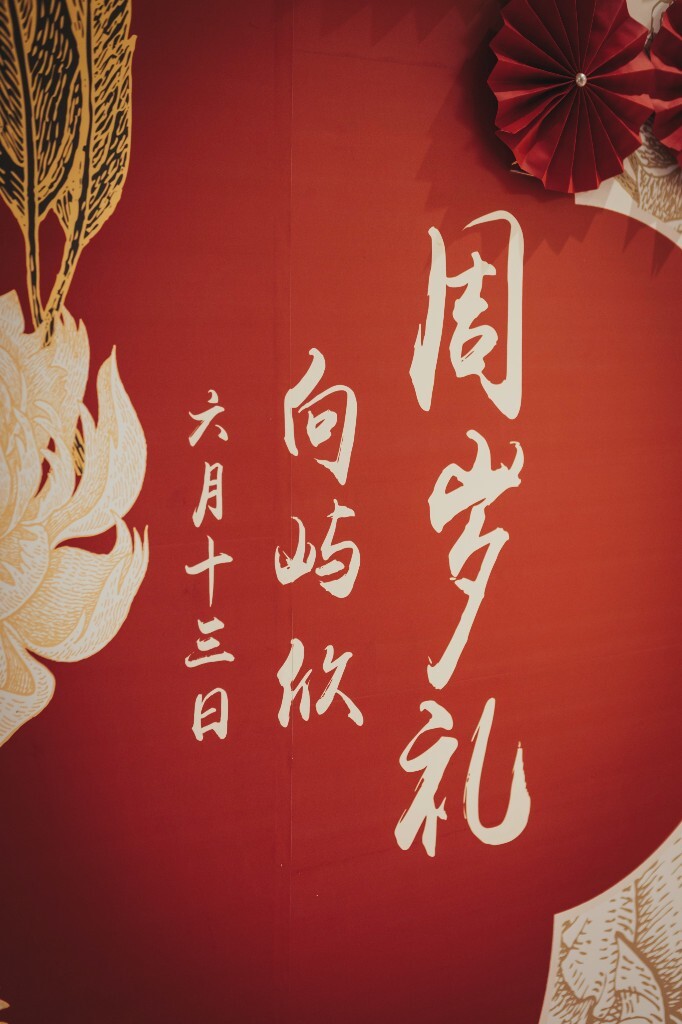 周岁礼
向屿欣
六月十三日